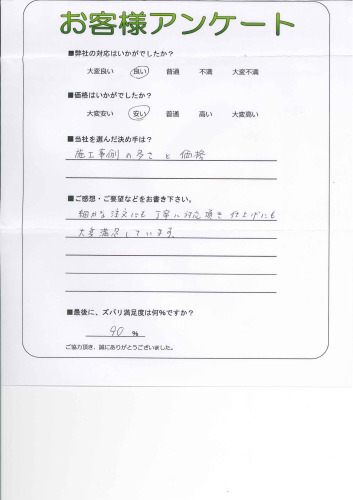 お客様アンケート
■弊社の対応はいかがでしたか？
大変良い 良い 普通 不満 大変不満
■価格はいかがでしたか？
大変安い 安い 普通 高い 大変高い
■当社を選んだ決め手は？
施工事例の多さと価格
■ご感想・ご要望などをお書き下さい。
細かな注文にも丁寧に対応頂き仕上げにも
大変満足しています。
■最後に、ズバリ満足度は何％ですか？
90 %
ご協力頂き、誠にありがとうございました。